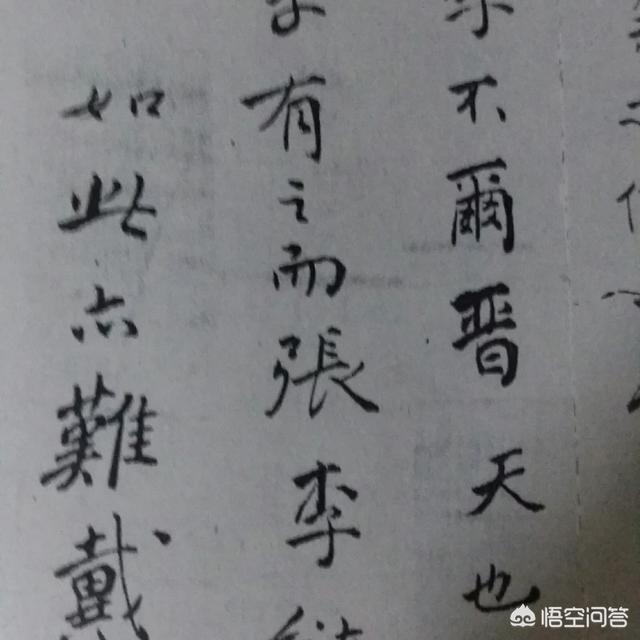 不爾晋天也
有之而張李
如此亦難戴
悟空问答